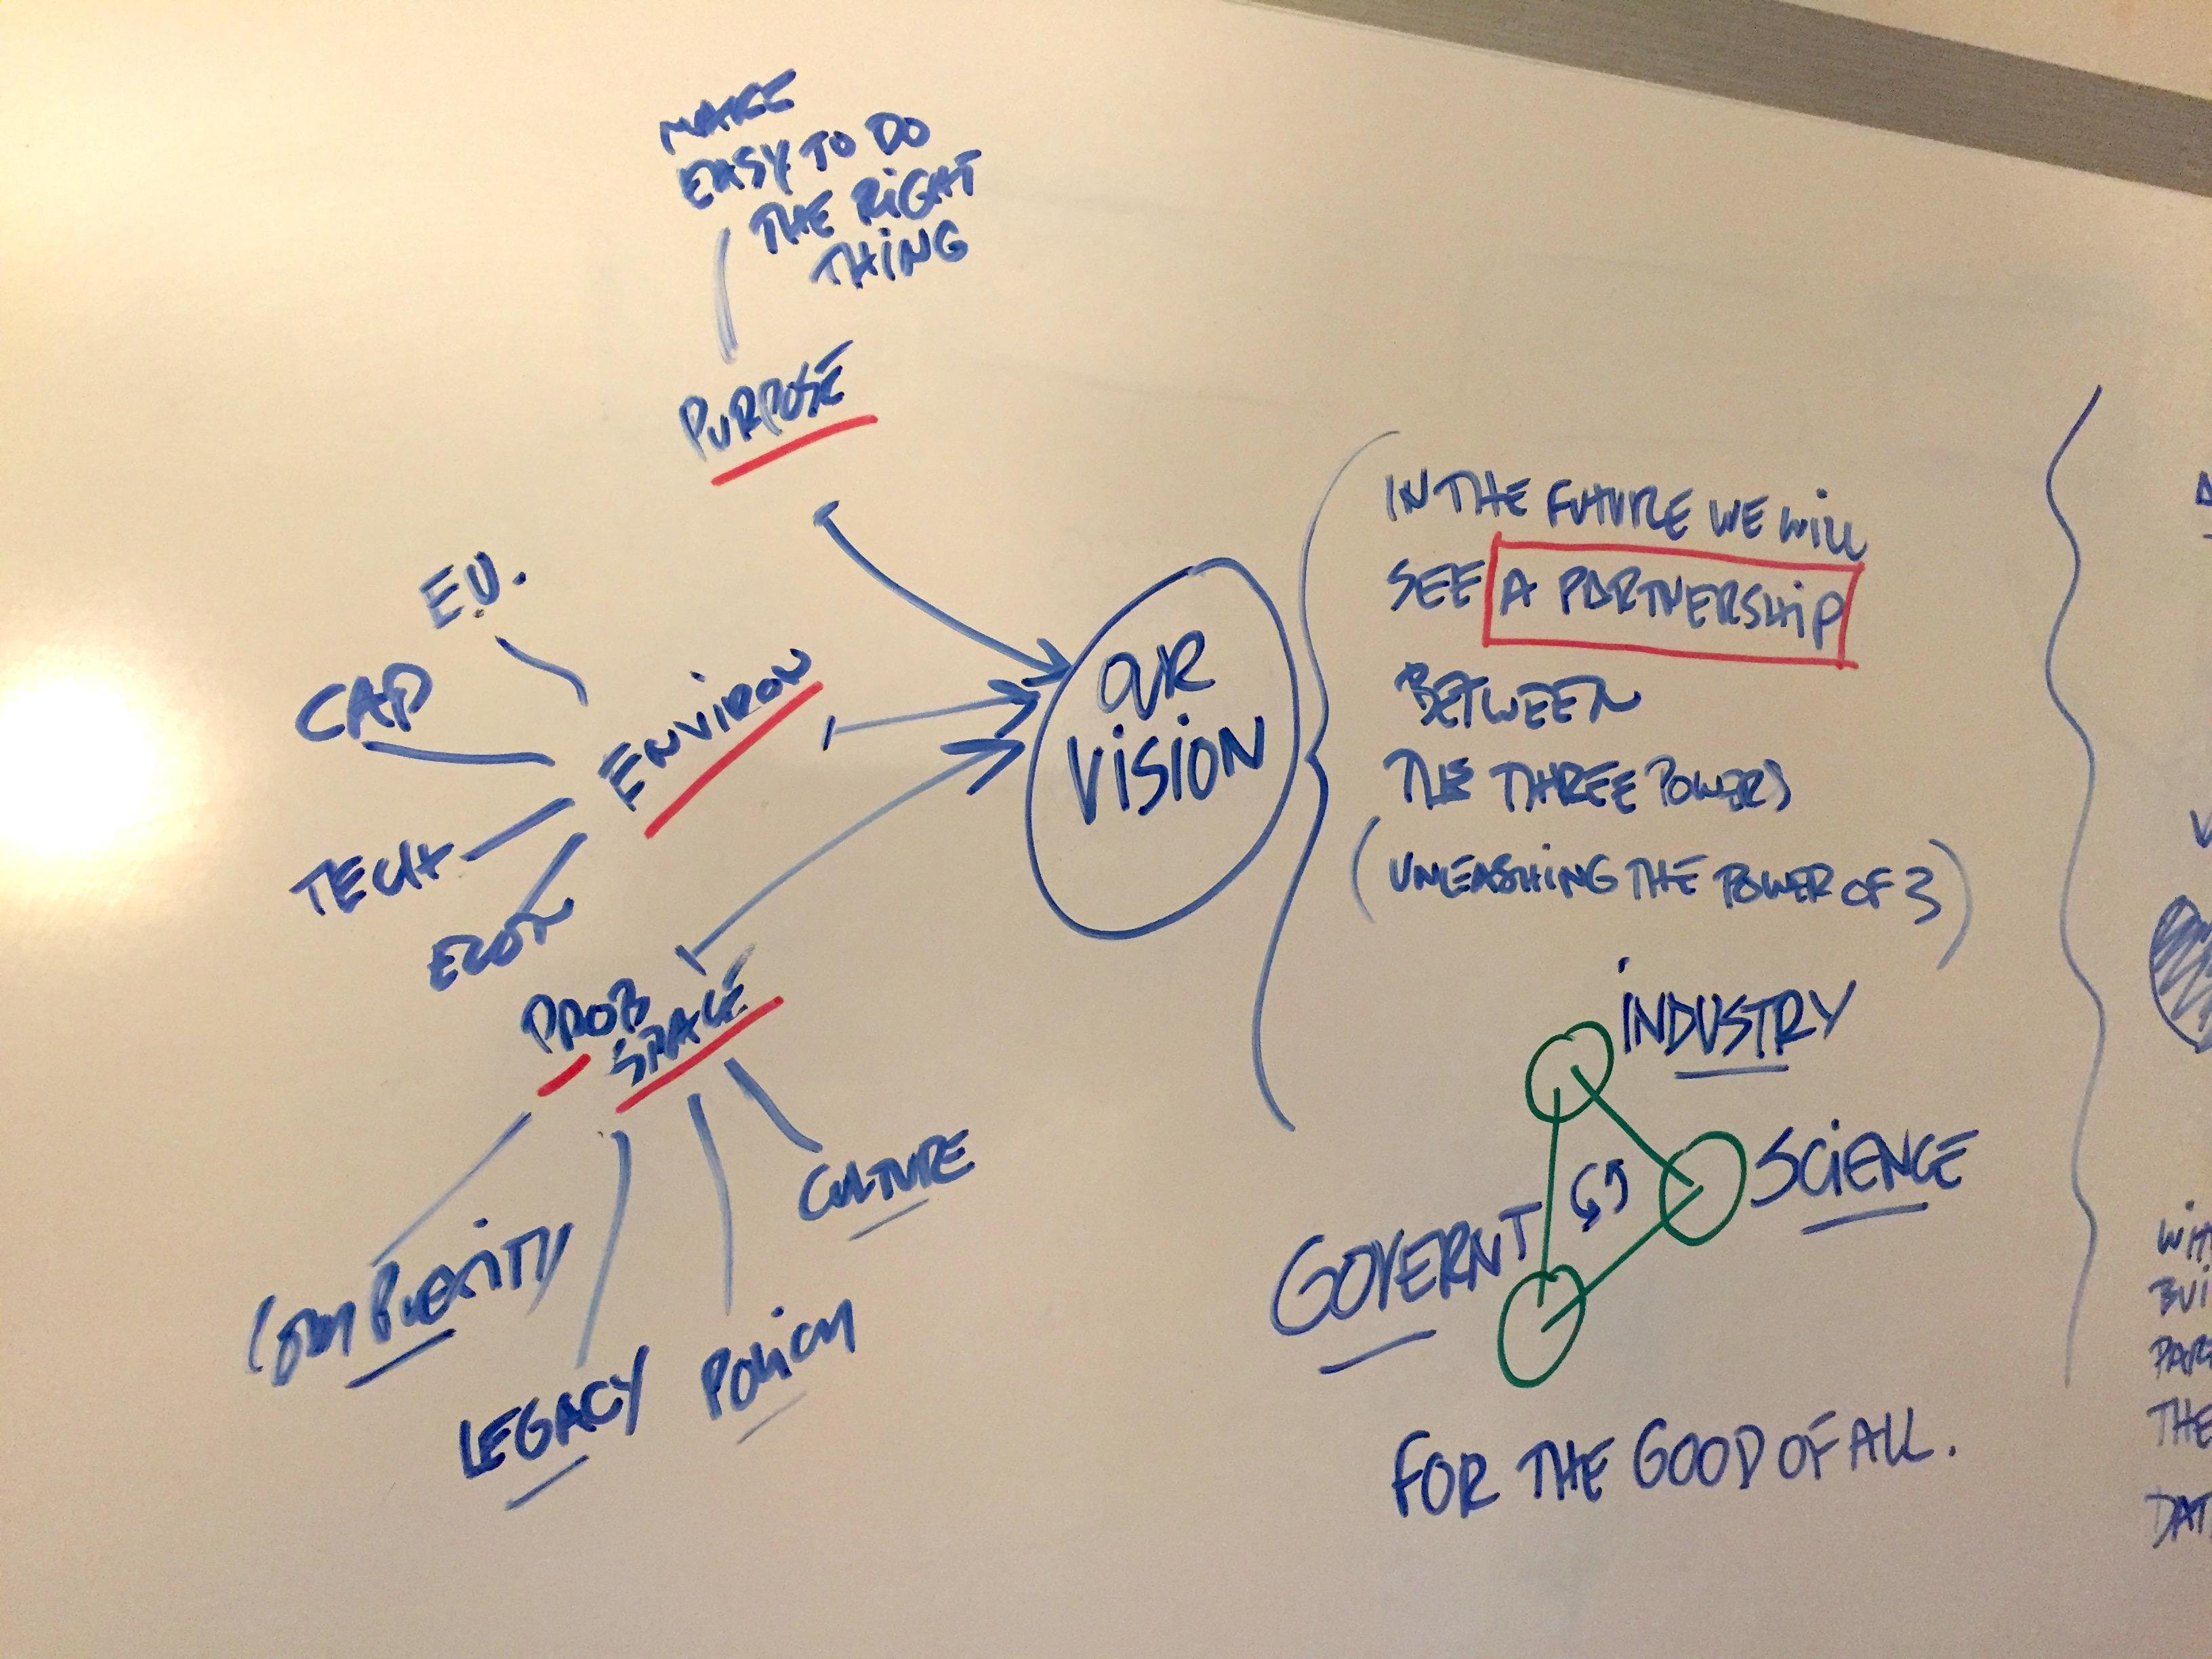 MAKE
EASY TO DO
THE RIGHT
THING
PURPOSE
E.U.
CAP
ENVIRON
TECH
ECON
PROB
SPACE
COMPLEXITY
LEGACY
POLICY
CULTURE
OUR
VISION
IN THE FUTURE WE WILL
SEE A PARTNERSHIP
BETWEEN
THE THREE POWERS
(UNLEASHING THE POWER OF 3)
INDUSTRY
SCIENCE
GOVERNT
FOR THE GOOD OF ALL.
BUI
PAR
THE
DAT